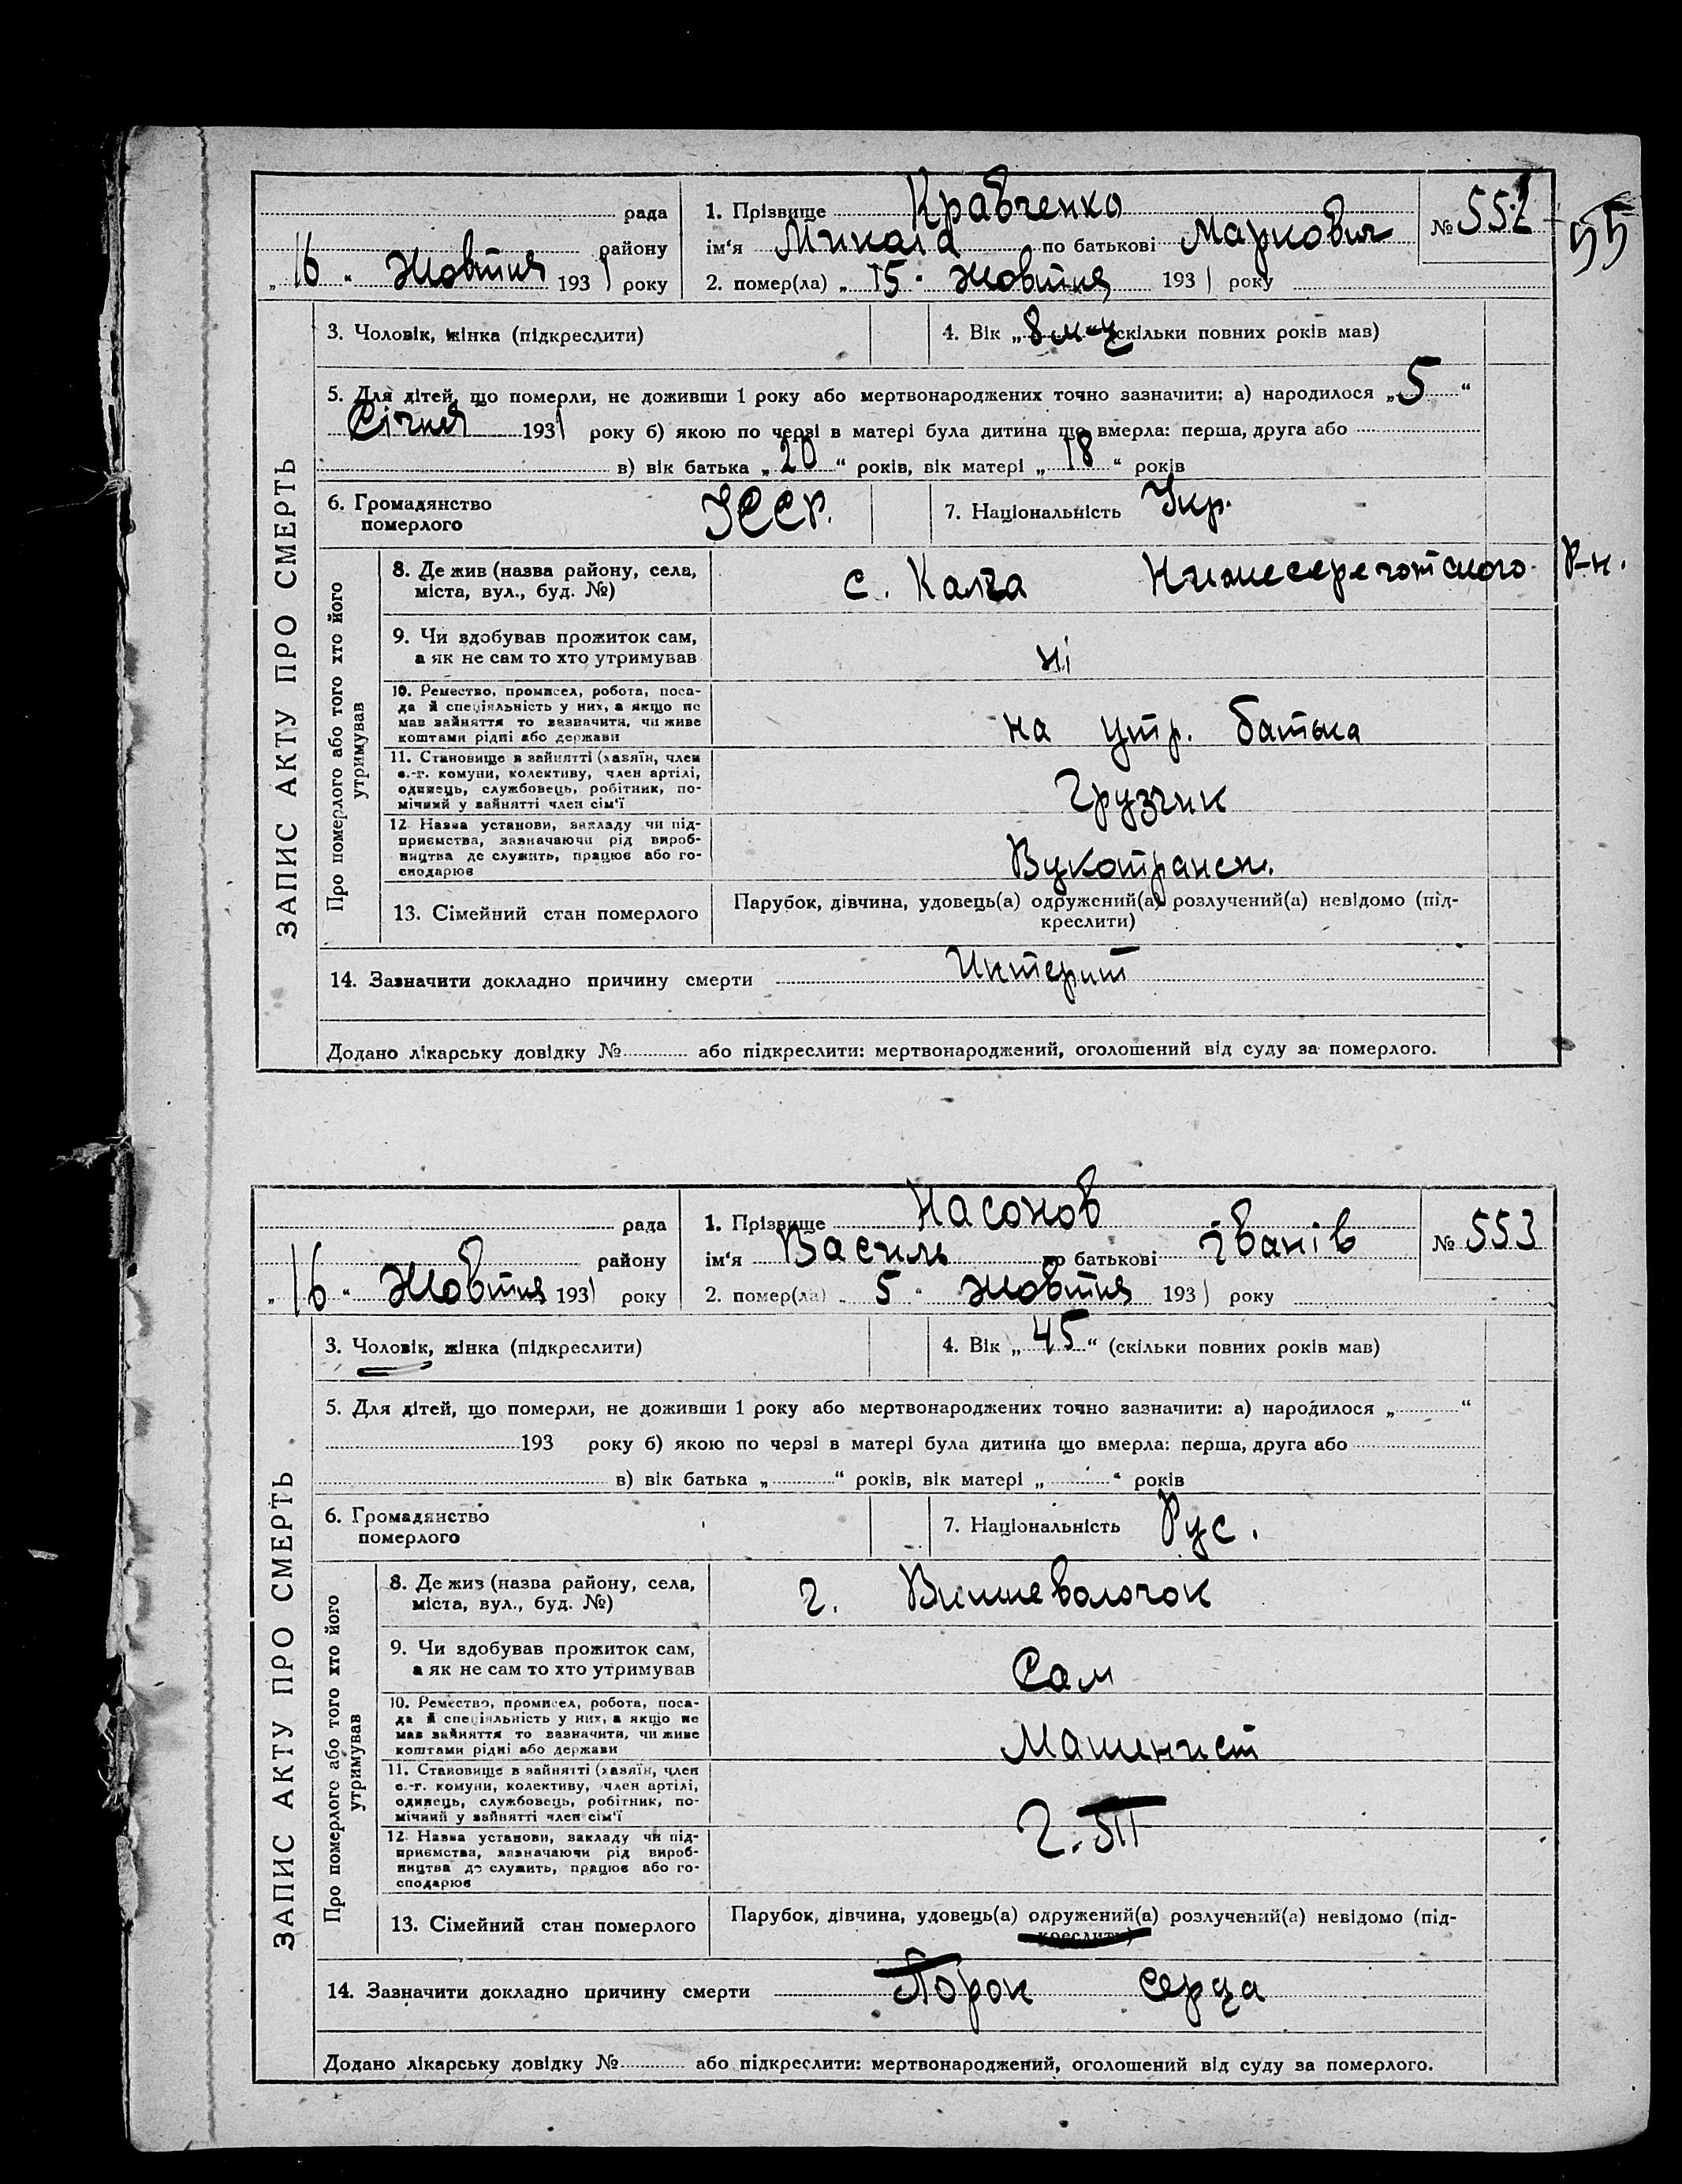 рада
району
„ 16 “ Жовтня 1931 року
1. Прізвище Кравченко
ім‘я Микола по батькові Маркович
2. помер(ла) „ 15 “ жовтня 1931 року
№ 552
55
ЗАПИС АКТУ ПРО СМЕРТЬ
3. Чоловік, жінка (підкреслити)
4. Вік „ 8 м-ц скільки повних років мав)
5. Для дітей, що померли, не доживши 1 року або мертвонароджених точно зазначити: а) народилося „ 5 “
Січня 1931 року б) якою по черзі в матері була дитина що вмерла: перша, друга або
в) вік батька „ 20 “ років, вік матері „ 18 “ років
6. Громадянство
померлого
УССР.
7. Національність Укр.
Про померлого або того хто його
утримував
8. Де жив (назва району, села,
міста, вул., буд. №)
с. Каліа Р-н.
9. Чи здобував прожиток сам,
а як не сам то хто утримував
ні
10. Ремество, промисел, робота, поса-
да й спеціяльність у них, а якщо не
мав зайняття то зазначити, чи живе
коштами рідні або держави
на утр. батька
11. Становище в зайнятті (хазяїн, член
с.-г. комуни, колективу, член артілі,
одинець, службовець, робітник, по-
мічний у зайнятті член сім‘ї
Грузчик
12. Назва установи, закладу чи під-
приємства, зазначаючи рід вироб-
ництва де служить, працює або го-
сподарює
Вукотрансп.
13. Сімейний стан померлого
Парубок, дівчина, удовець(а) одружений(а) розлучений(а) невідомо (під-
креслити)
14. Зазначити докладно причину смерти Интерит
Додано лікарську довідку № або підкреслити: мертвонароджений, оголошений від суду за померлого.
рада
району
„ 16 “ Жовтня 1931 року
1. Прізвище Насонов
ім‘я Василь по батькові Іванів
2. помер(ла) „ 5 “ жовтня 1931 року
№ 553
ЗАПИС АКТУ ПРО СМЕРТЬ
3. Чоловік, жінка (підкреслити)
4. Вік „ 45 “ (скільки повних років мав)
5. Для дітей, що померли, не доживши 1 року або мертвонароджених точно зазначити: а) народилося „ “
193 року б) якою по черзі в матері була дитина що вмерла: перша, друга або
в) вік батька „ “ років, вік матері „ “ років
6. Громадянство
померлого
7. Національність Рус.
Про померлого або того хто його
утримував
8. Де жив (назва району, села,
міста, вул., буд. №)
г. Вишеволочок
9. Чи здобував прожиток сам,
а як не сам то хто утримував
Сам
10. Ремество, промисел, робота, поса-
да й спеціяльність у них, а якщо не
мав зайняття то зазначити, чи живе
коштами рідні або держави
Машинист
11. Становище в зайнятті (хазяїн, член
с.-г. комуни, колективу, член артілі,
одинець, службовець, робітник, по-
мічний у зайнятті член сім‘ї
12. Назва установи, закладу чи під-
приємства, зазначаючи рід вироб-
ництва де служить, працює або го-
сподарює
13. Сімейний стан померлого
Парубок, дівчина, удовець(а) одружений(а) розлучений(а) невідомо (під-
креслити)
14. Зазначити докладно причину смерти Порок серца
Додано лікарську довідку № або підкреслити: мертвонароджений, оголошений від суду за померлого.